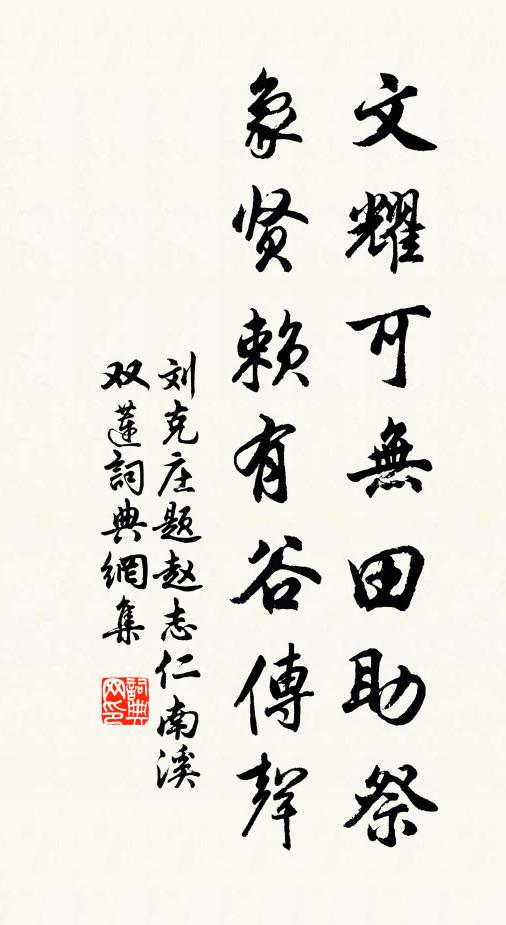 文耀可無田助祭
象贤赖有谷傳聲
刘克庄题赵志仁南溪
双莲詞典網集
詞典网印